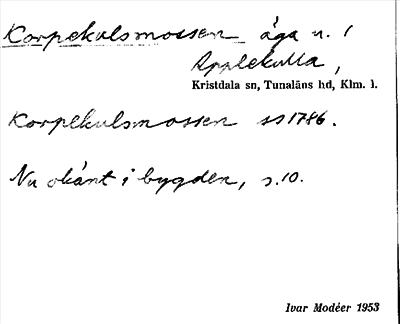 Korpekulsmossen äga u. 1
Applekulla,
Kristdala sn, Tunaläns hd, Klm. l.
Korpekulsmossen ss 1786.
Nu okänt i bygden, s. 10.
Ivar Modéer 1953